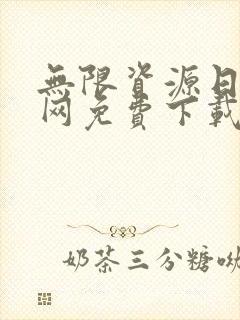 無限資源日
网免費下載
奶茶三分糖呦